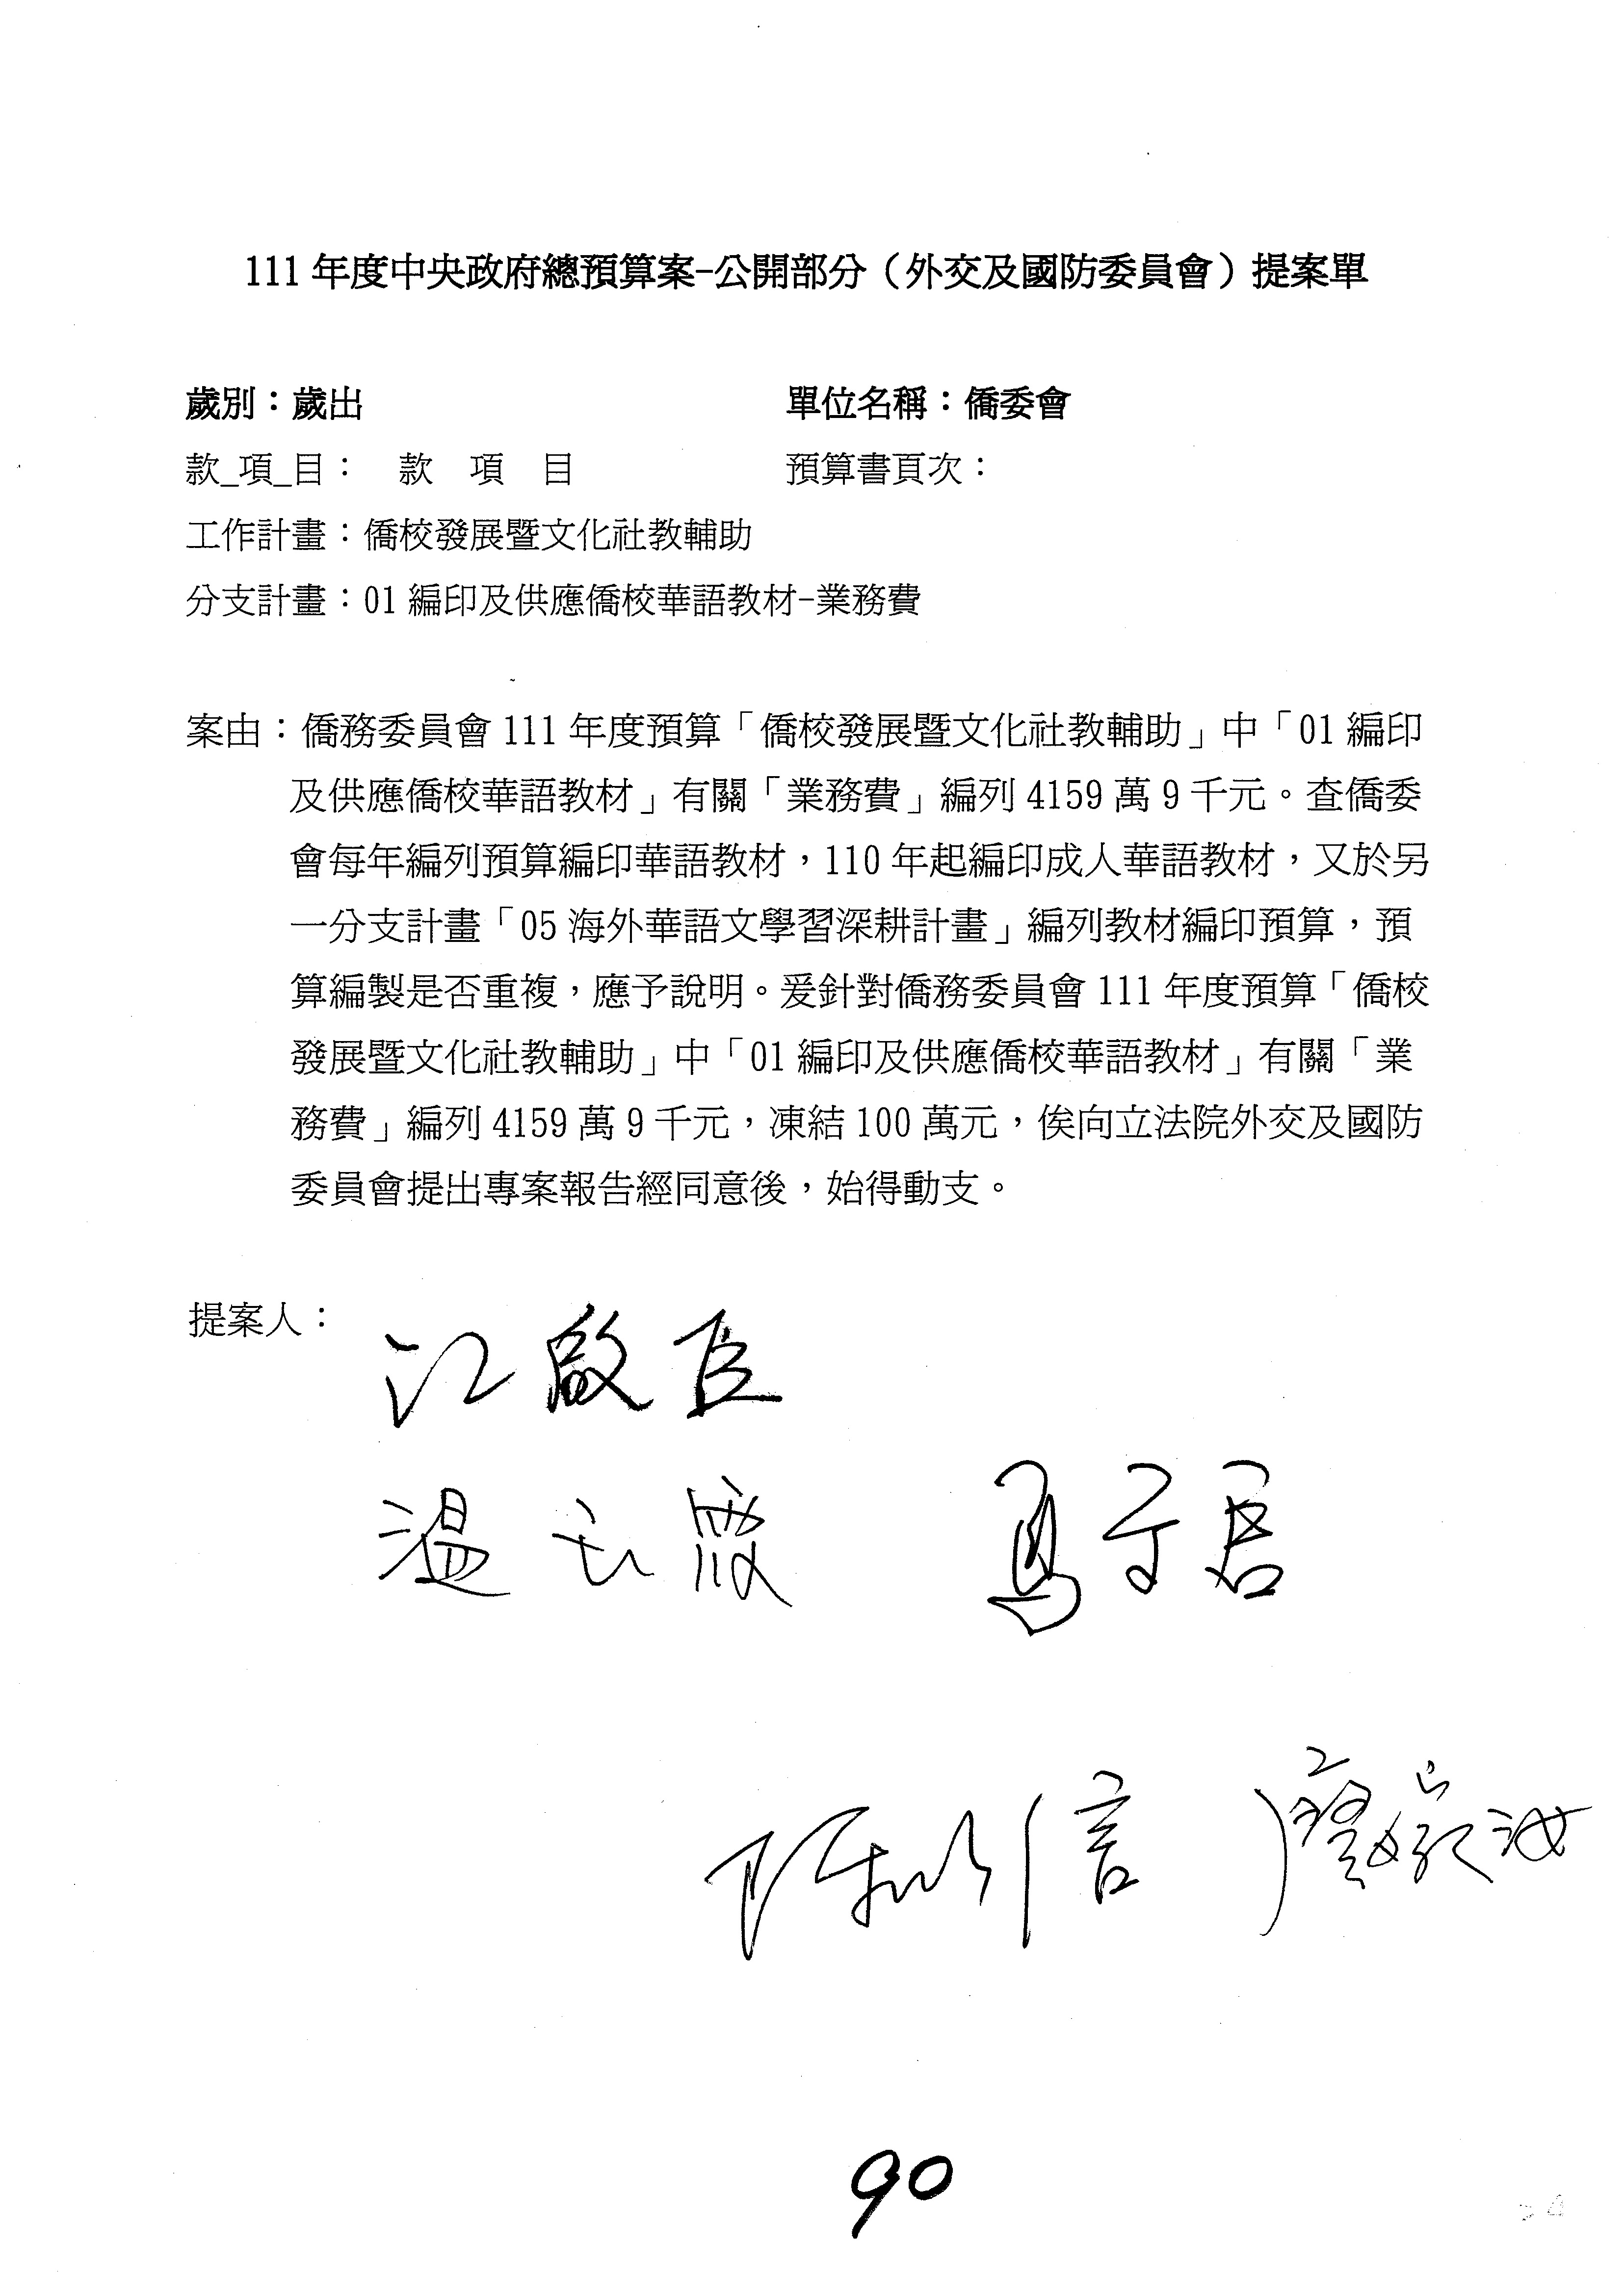 111 年度中央政府總預算案-公開部分（外交及國防委員會）提案單
歲別：歲出 單位名稱：僑委會
款_項_目： 款 項 目 預算書頁次：
工作計畫：僑校發展暨文化社教輔助
分支計畫：01 編印及供應僑校華語教材-業務費
案由：僑務委員會 111 年度預算「僑校發展暨文化社教輔助」中「01 編印
及供應僑校華語教材」有關「業務費」編列 4159 萬 9 千元。查僑委
會每年編列預算編印華語教材，110 年起編印成人華語教材，又於另
一分支計畫「05 海外華語文學習深耕計畫」編列教材編印預算，預
算編製是否重複，應予說明。爰針對僑務委員會 111 年度預算「僑校
發展暨文化社教輔助」中「01 編印及供應僑校華語教材」有關「業
務費」編列 4159 萬 9 千元，凍結 100 萬元，俟向立法院外交及國防
委員會提出專案報告經同意後，始得動支。
提案人：
江啟臣
溫玉霞 馬文君
陳以信 廖婉汝
90